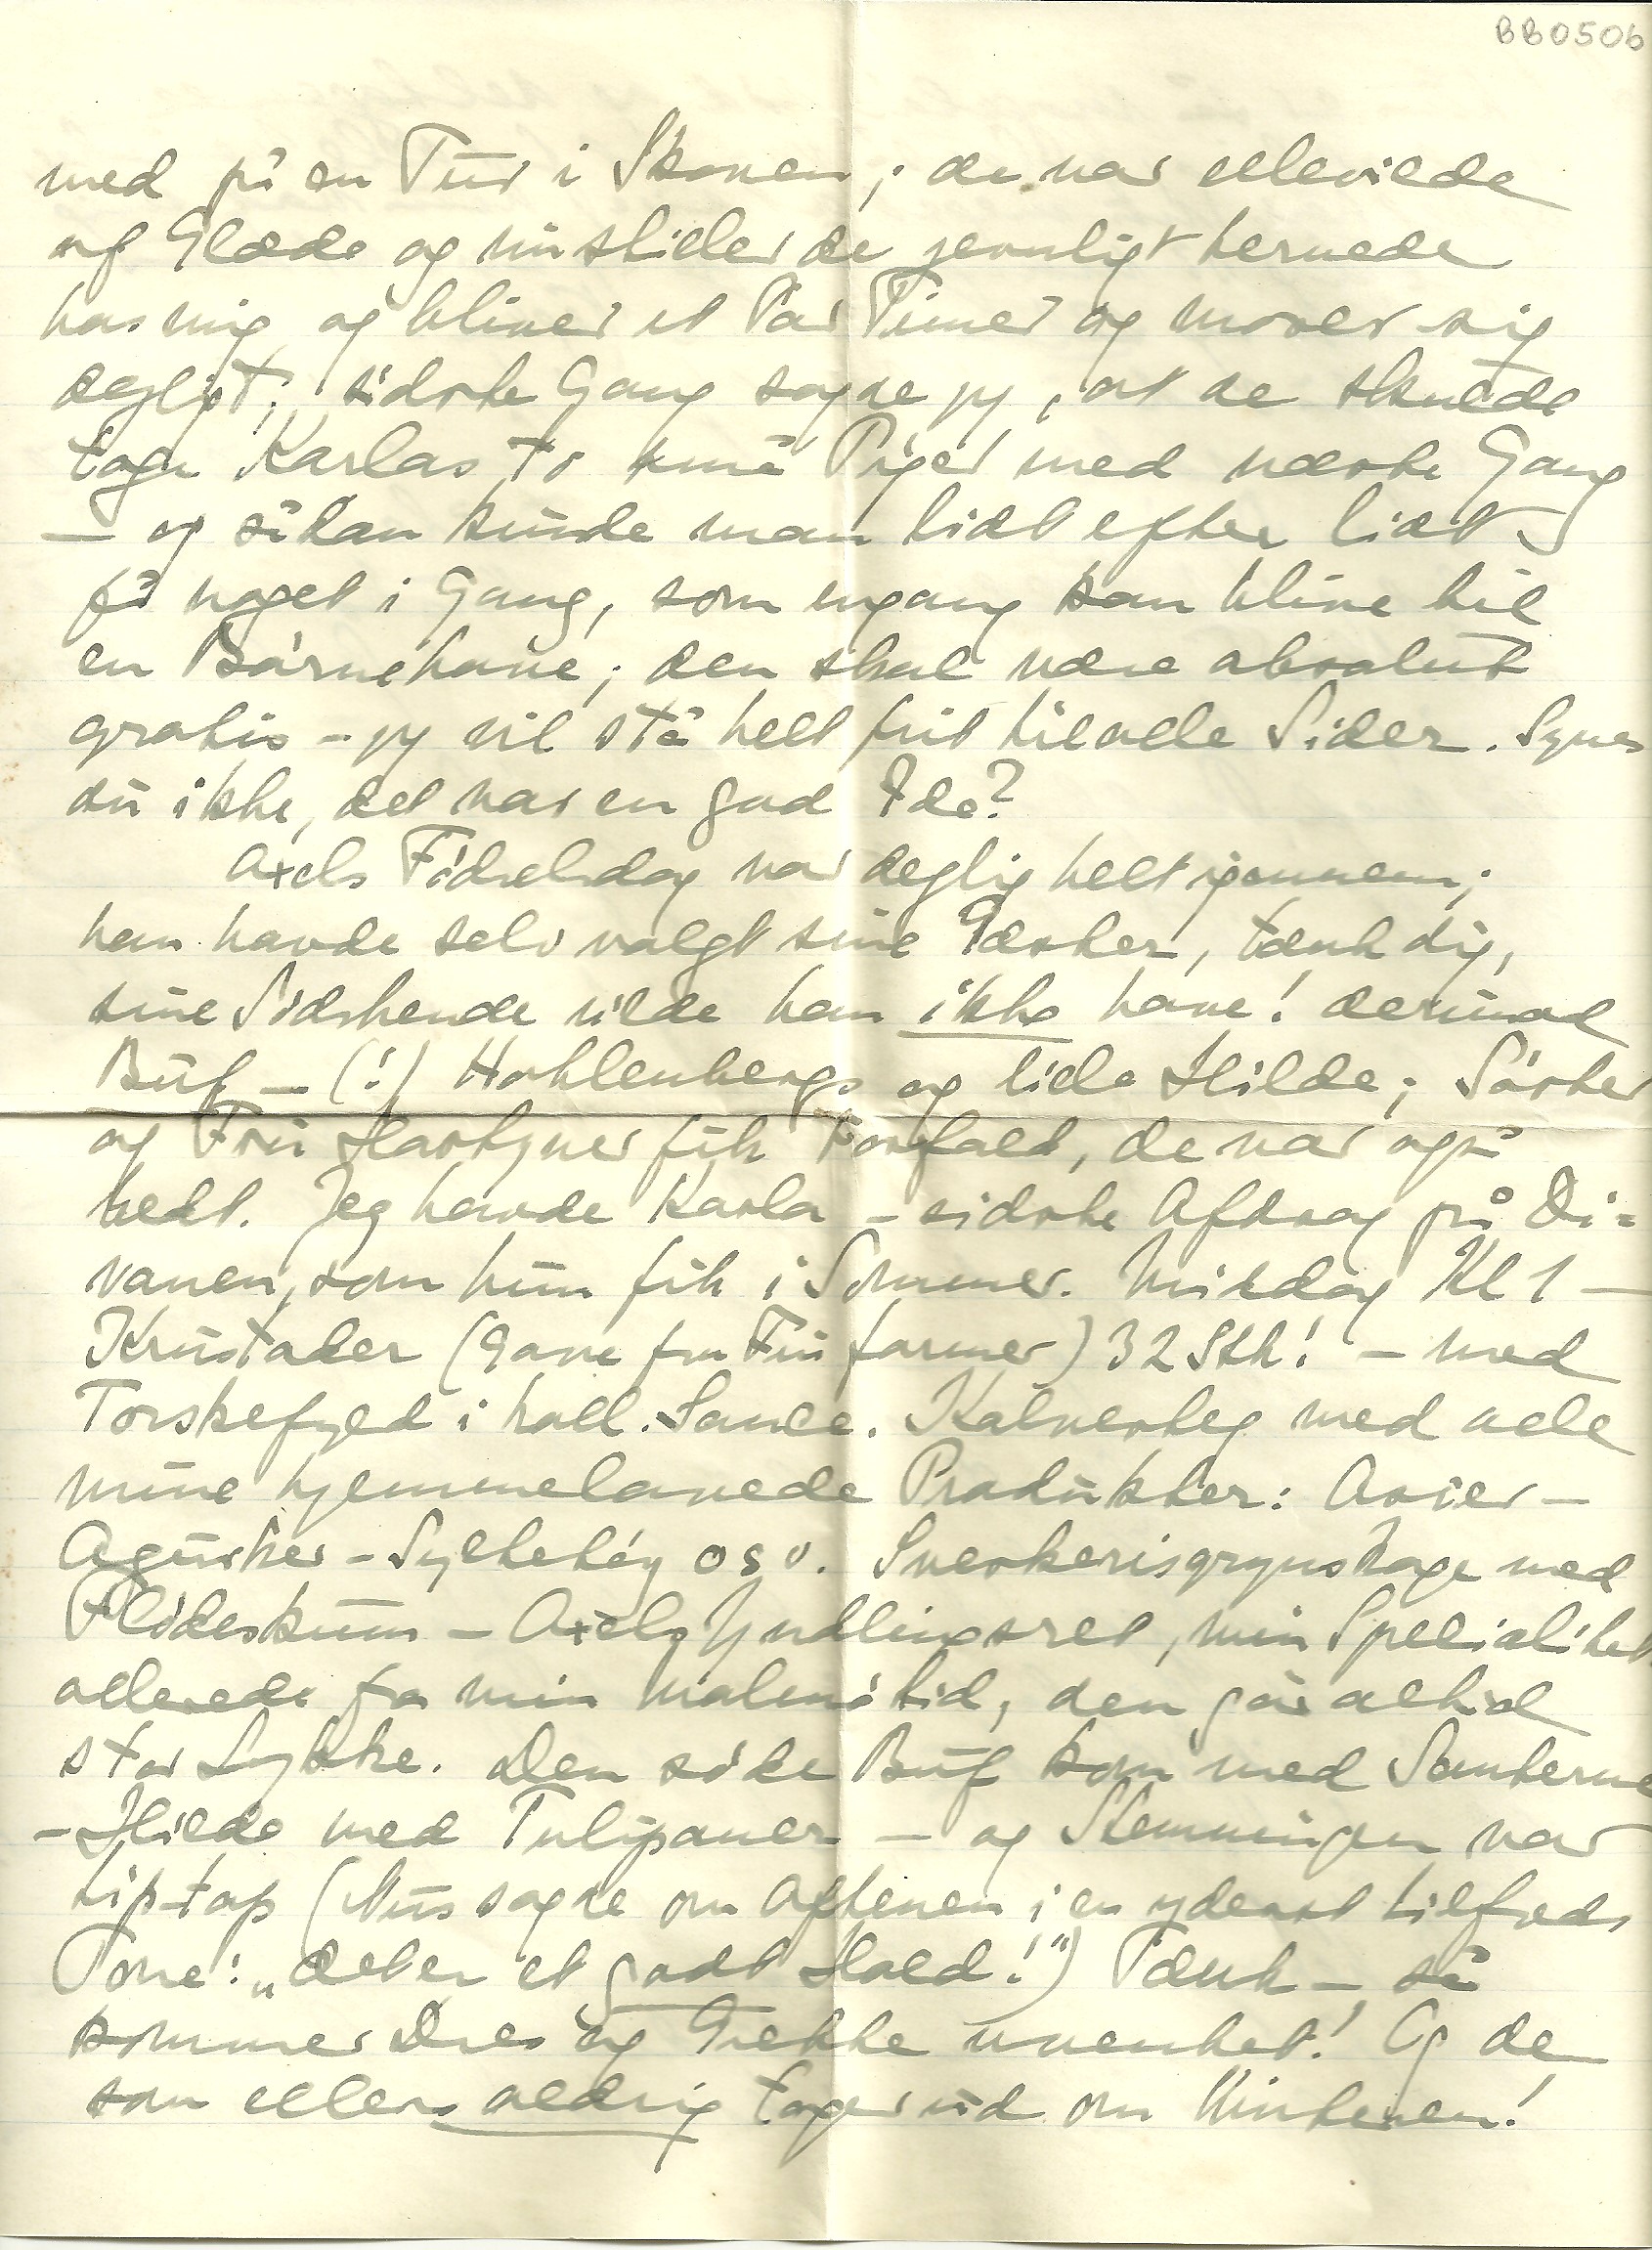 BB0506
med på en Tur i Skoven; de var ellevilde
af Glæde og nu stiller de jevnligt hernede
hos mig og bliver et Par Timer og morer sig
dejligt; sidste Gang sagde jeg, at de skulde
tage Karlas to små Piger med næste Gang
– og sådan kunde man lidt efter lidt
få noget i Gang, som engang kan blive til
en Börnehave; den skal være absolut
gratis – jeg vil stå helt frit til alle Sider. Synes
du ikke, det var en god Ide?
Axels Födselsdag var dejlig helt igennem;
han havde selv valgt sine Gæster, tænk dig,
sine Södskende vilde han ikke have! derimod
Buf – (!) Hohlenbergs og lille Hilde; Söster
og Fru Hastyner fik Forfald, de var også
bedt. Jeg havde Karla – sidste Afdrag på Di=
vanen, som hun fik i Sommer. Middag Kl 1 –
Krustader (Gave fra Fru farmer) 32 Stk! – med
Torskefyld i holl. Sauce. Kalvesteg med alle
mine hjemmelavede Produkter: Asier –
Agurker – Syltetöj osv. Sveskerisgrynskage med
Flödeskum – Axels Yndlingsret, min Specialitet
allerede fra min Malmö tid, den gör altid
stor Lykke. Den söde Buf kom med Sauterne
– Hilde med Tulipaner – og Stemningen var
tip-top (Mus sagde om Aftenen i en yderst tilfreds
Tone: „det er et godt Hold!") Tænk – så
kommer Dres og Grethe uventet! Og de
som ellers aldrig tager ud om Vinteren!